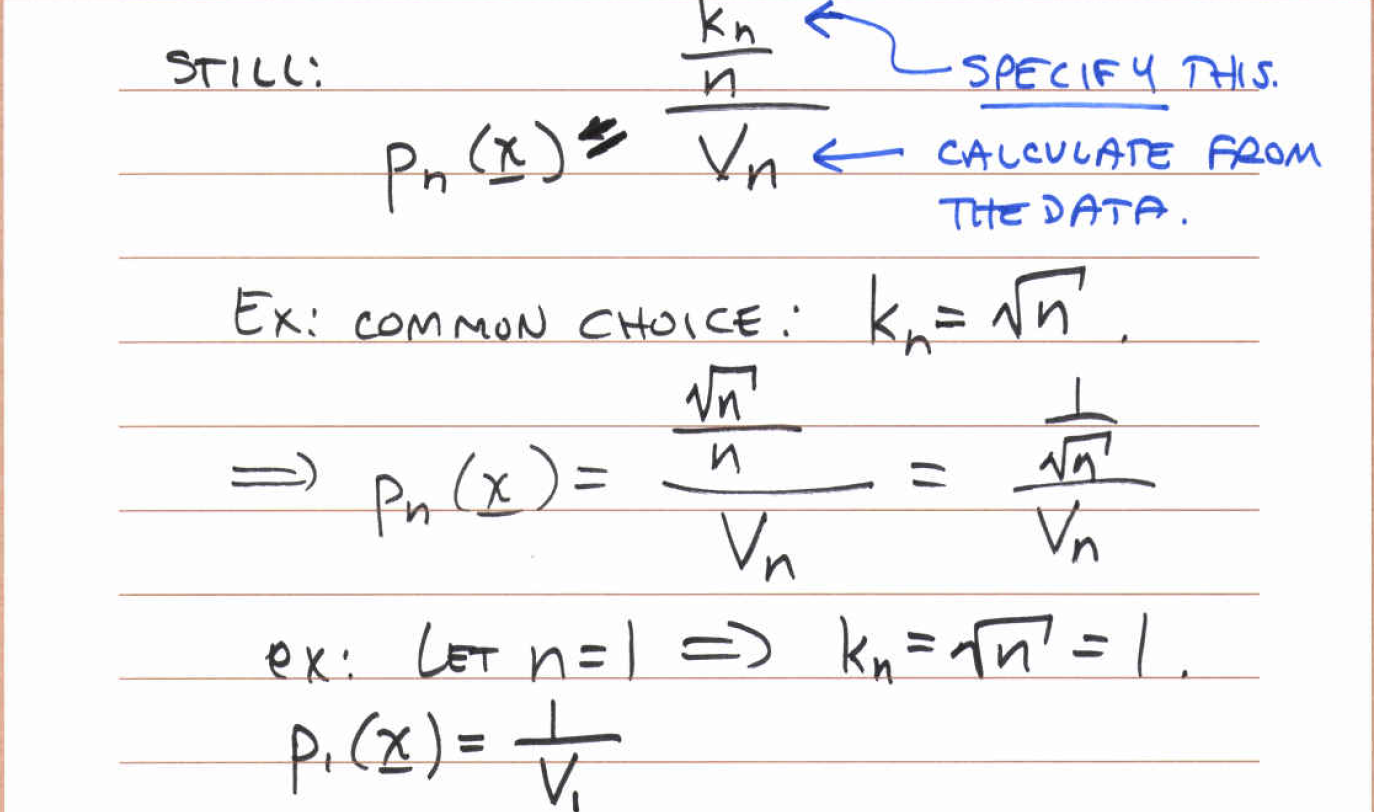 STILL:
p_n(x) = (k_n/n)/V_n
← SPECIFY THIS.
← CALCULATE FROM
THE DATA.
Ex: COMMON CHOICE: k_n = √n.
⇒ p_n(x) = (√n/n)/V_n = (1/√n)/V_n
ex: LET n=1 ⇒ k_n = √n = 1.
p_1(x) = 1/V_1